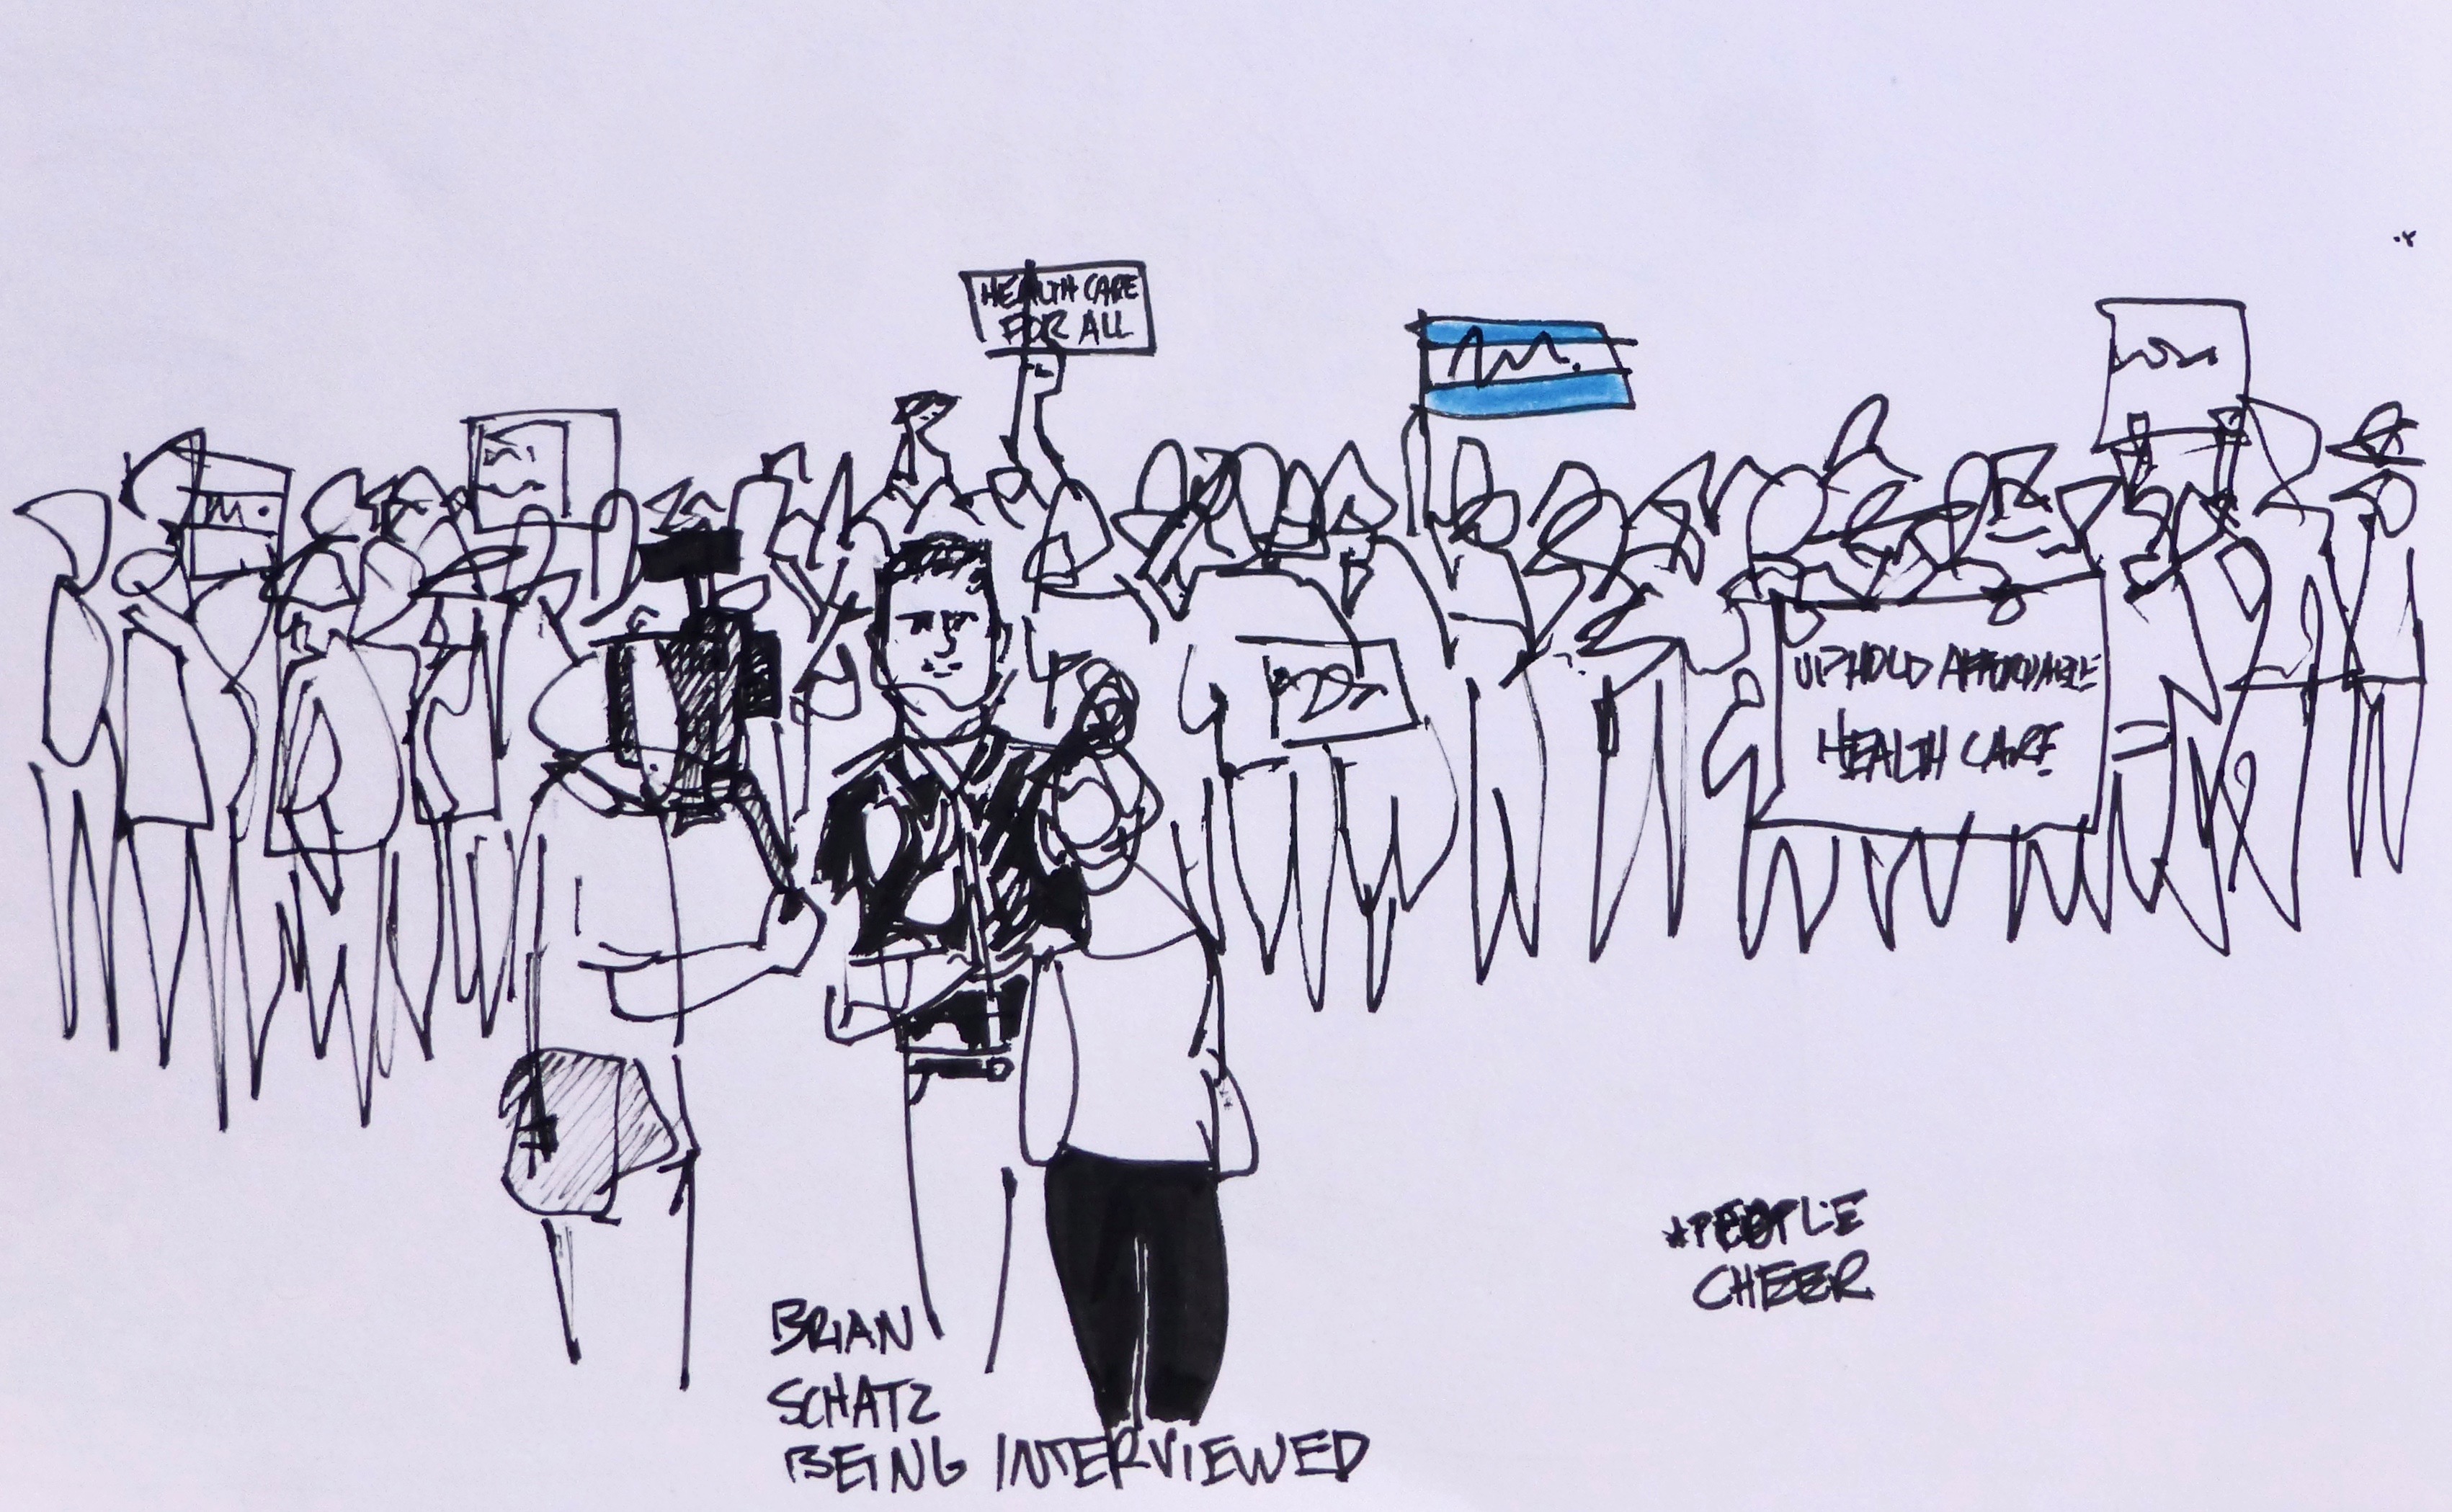 HEALTH CARE
FOR ALL
UPHOLD AFFORDABLE
HEALTH CARE
*PEOPLE
CHEER
BRIAN
SCHATZ
BEING INTERVIEWED